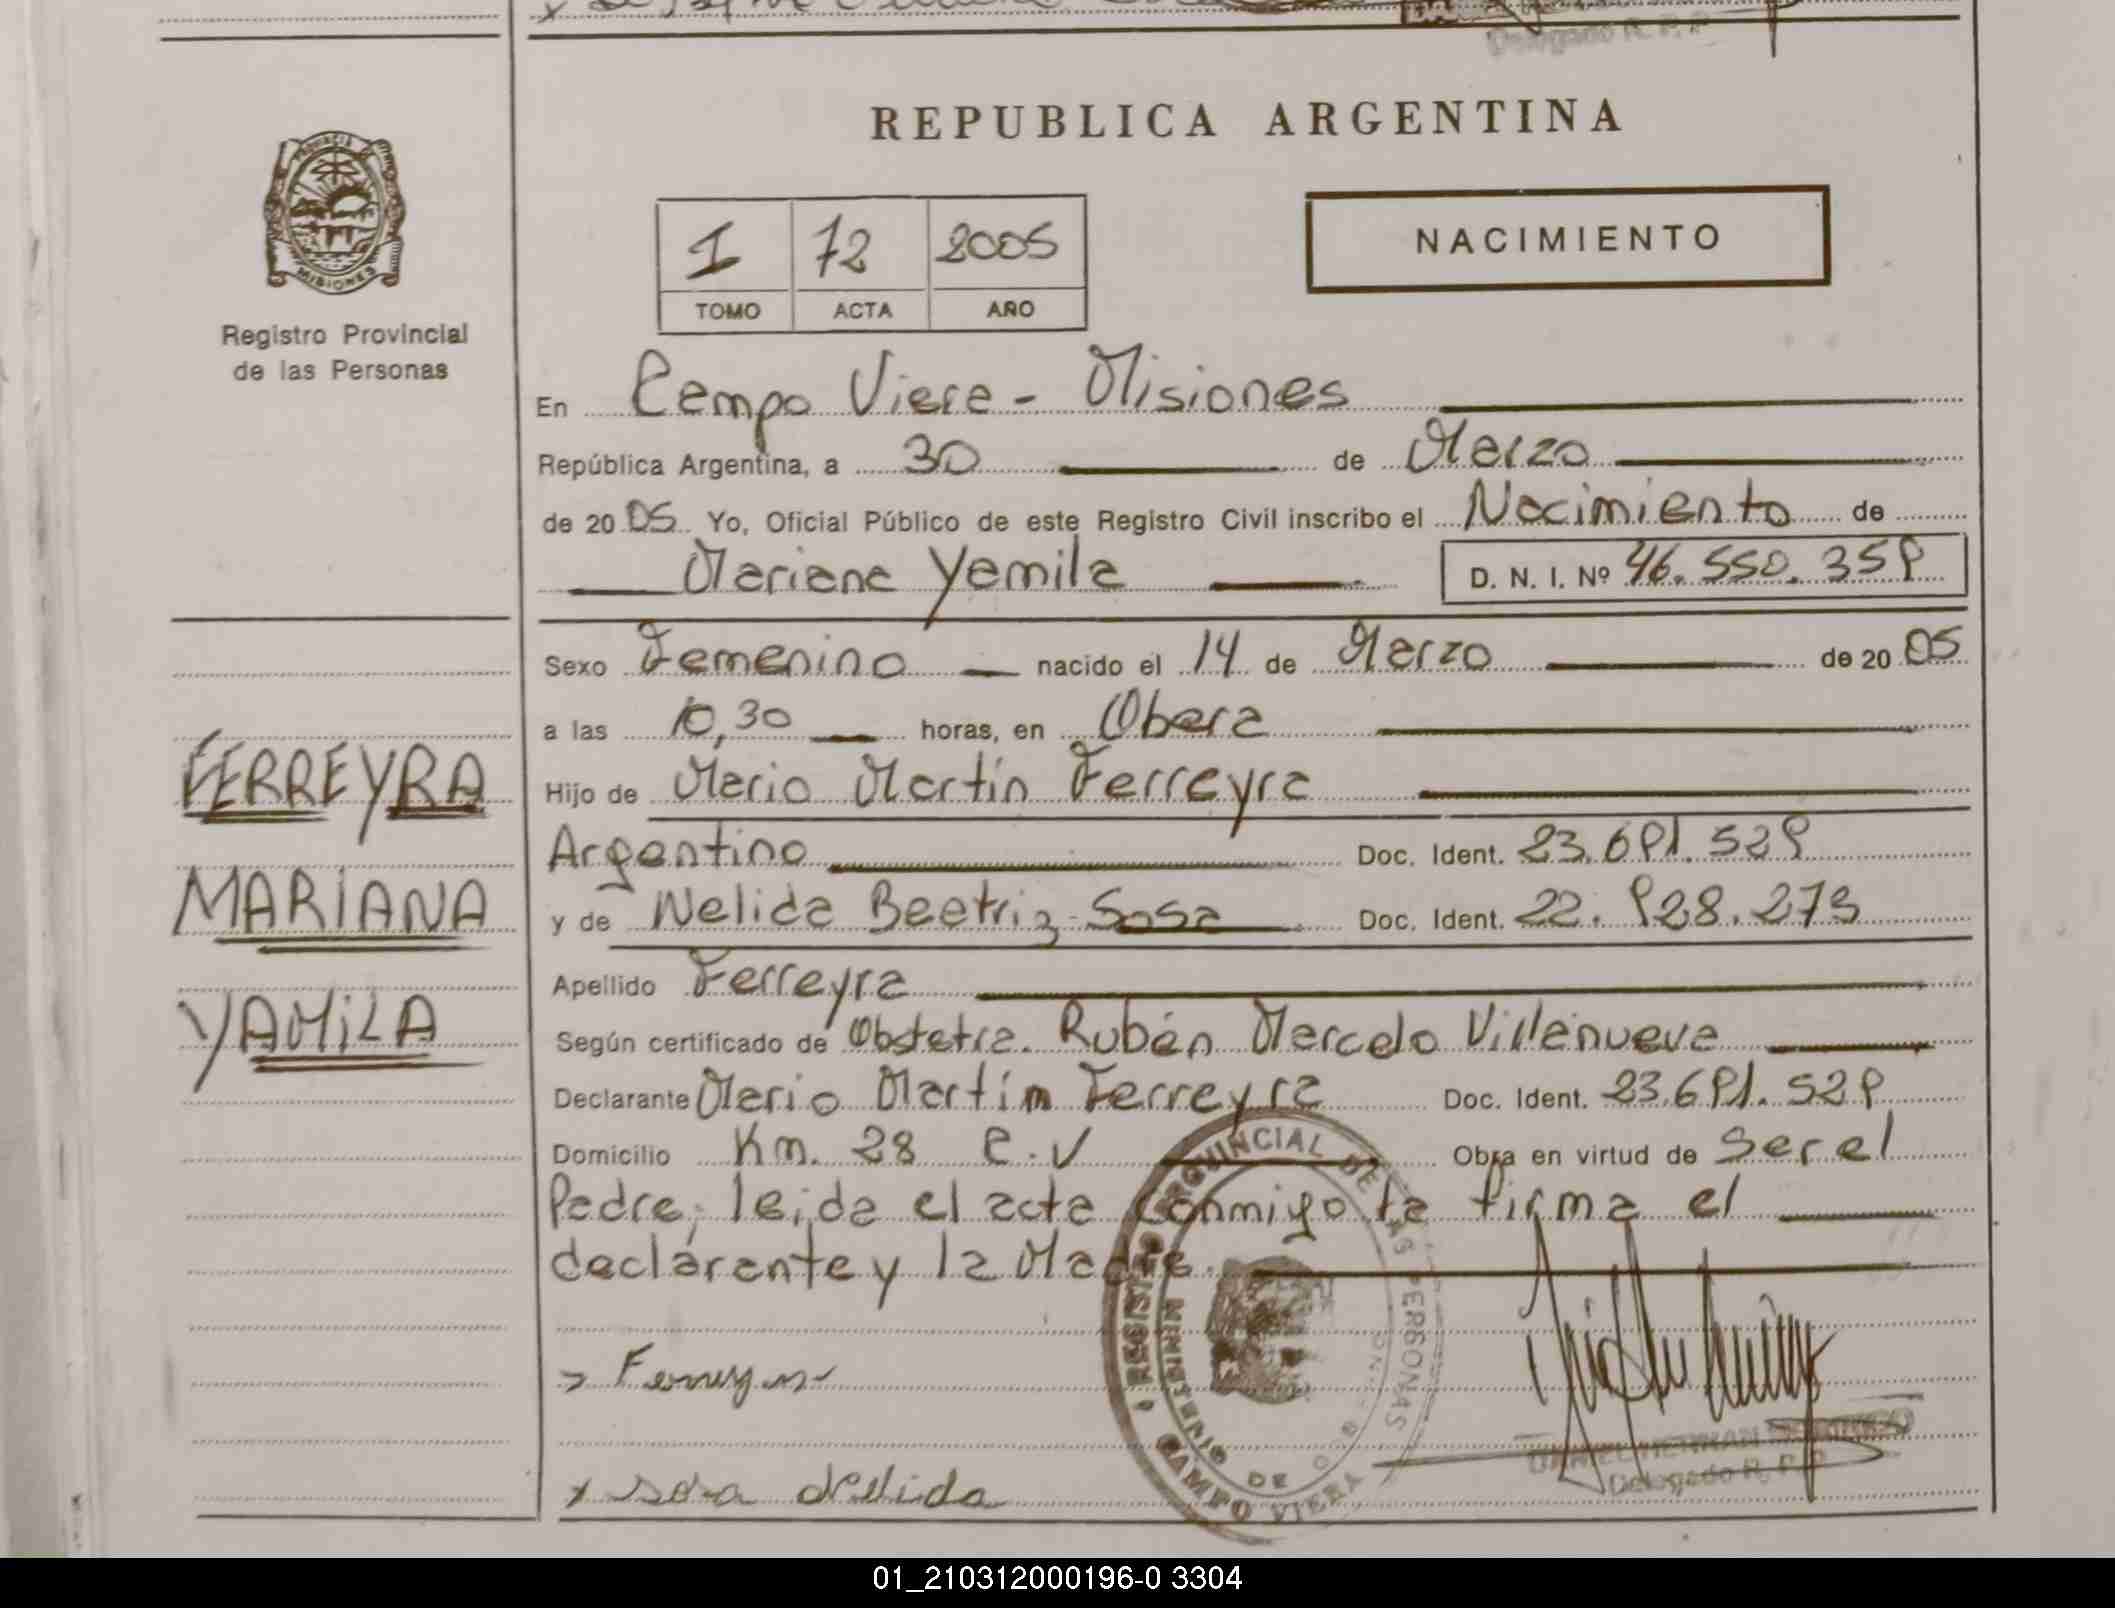 Delegado R. P. P.
REPUBLICA ARGENTINA
PROVINCIA DE
MISIONES
Registro Provincial
de las Personas
1 72 2005
TOMO ACTA AÑO
NACIMIENTO
En Campo Viera - Misiones
República Argentina, a 30 de Marzo
de 2005 Yo, Oficial Público de este Registro Civil inscribo el Nacimiento de
Mariana Yamila D. N. I. Nº 46.550.359
Sexo Femenino nacido el 14 de Marzo de 2005
a las 10,30 horas, en Obera
Hijo de Mario Martín Ferreyra
Argentino Doc. Ident. 23.691.529
y de Nelida Beatriz Sosa Doc. Ident. 22.928.273
Apellido Ferreyra
Según certificado de Obstetra. Rubén Marcelo Villanueva
Declarante Mario Martín Ferreyra Doc. Ident. 23.691.529
Domicilio Km. 28 C.V Obra en virtud de Ser el
Padre, leida el acta conmigo la firma el
declarante y la Madre.
FERREYRA
MARIANA
YAMILA
Ferreyra
x Sosa Nelida
REGISTRO PROVINCIAL DE LAS PERSONAS
MINISTERIO DE GOBIERNO
CAMPO VIERA
Delegado R. P. P
01_210312000196-0 3304